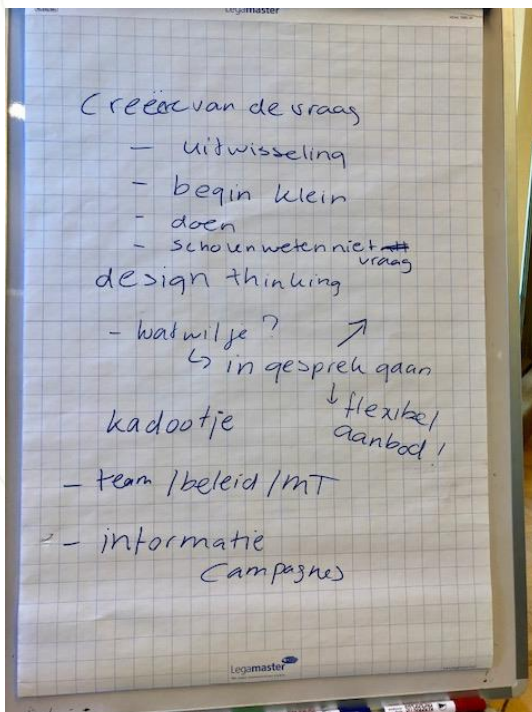 Legamaster
Creëer van de vraag
- uitwisseling
- begin klein
- doen
- scholen weten niet
vraag
design thinking
- wat wil je?
↳ in gesprek gaan
↓ flexibel
aanbod!
kadootje
- team / beleid / MT
- informatie
Campagnes
Legamaster